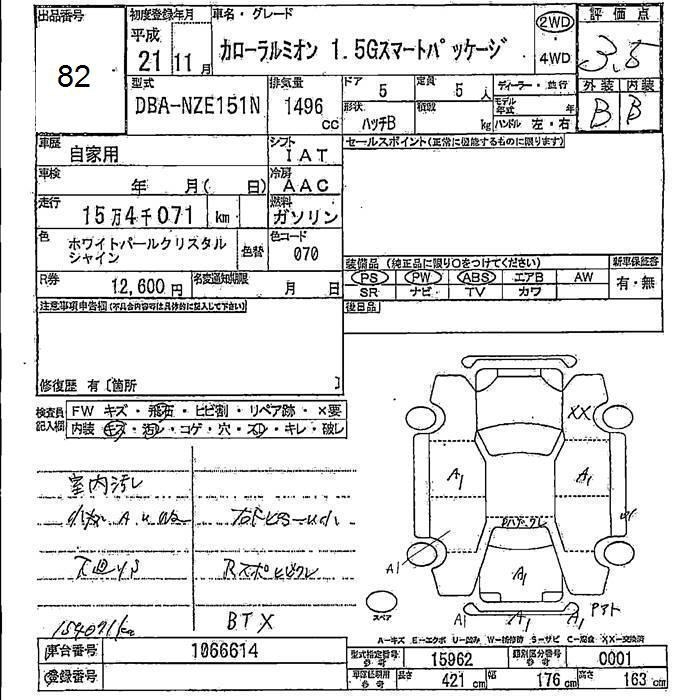 出品番号 初度登録年月 車名・グレード 2WD 評価点
82 平成 21 11月 カローラルミオン 1.5Gスマートパッケージ 4WD 3.5
型式 排気量 ドア 5 定員 5人 ディーラー・並行 外装 内装
DBA-NZE151N 1496cc 形状 ハッチB 積載 kg モデル年式 年 ハンドル 左・右 B B
車歴 自家用 シフト IAT セールスポイント(正常に機能するものに限ります)
車検 年 月( 日) 冷房 AAC
走行 15万4千071 km 燃料 ガソリン
色 ホワイトパールクリスタルシャイン 色替 色コード 070
装備品 (純正品に限り○をつけてください) 新車保証書
PS PW ABS エアB AW 有・無
SR ナビ TV カワ
R券 12,600円 名変通知期限 月 日
後日品
注意事項申告欄(不具合内容等は具体的に記入して下さい)
修復歴 有〔箇所 〕
検査員記入欄 FW キズ・飛石・ヒビ割・リペア跡・×要
内装 キズ・汚レ・コゲ・穴・スレ・キレ・破レ
室内汚レ
下廻りS
154071km
BTX
XX
A1 A1
A1
A1
A1 A1 A1
スペア
A-キズ E-エクボ U-凹み W-補修跡 S-サビ C-腐食 XX-交換済
車台番号 1066614
登録番号
型式指定番号 参考 15962 類別区分番号 参考 0001
車庫証明用 参考 長さ 421cm 幅 176cm 高さ 163cm